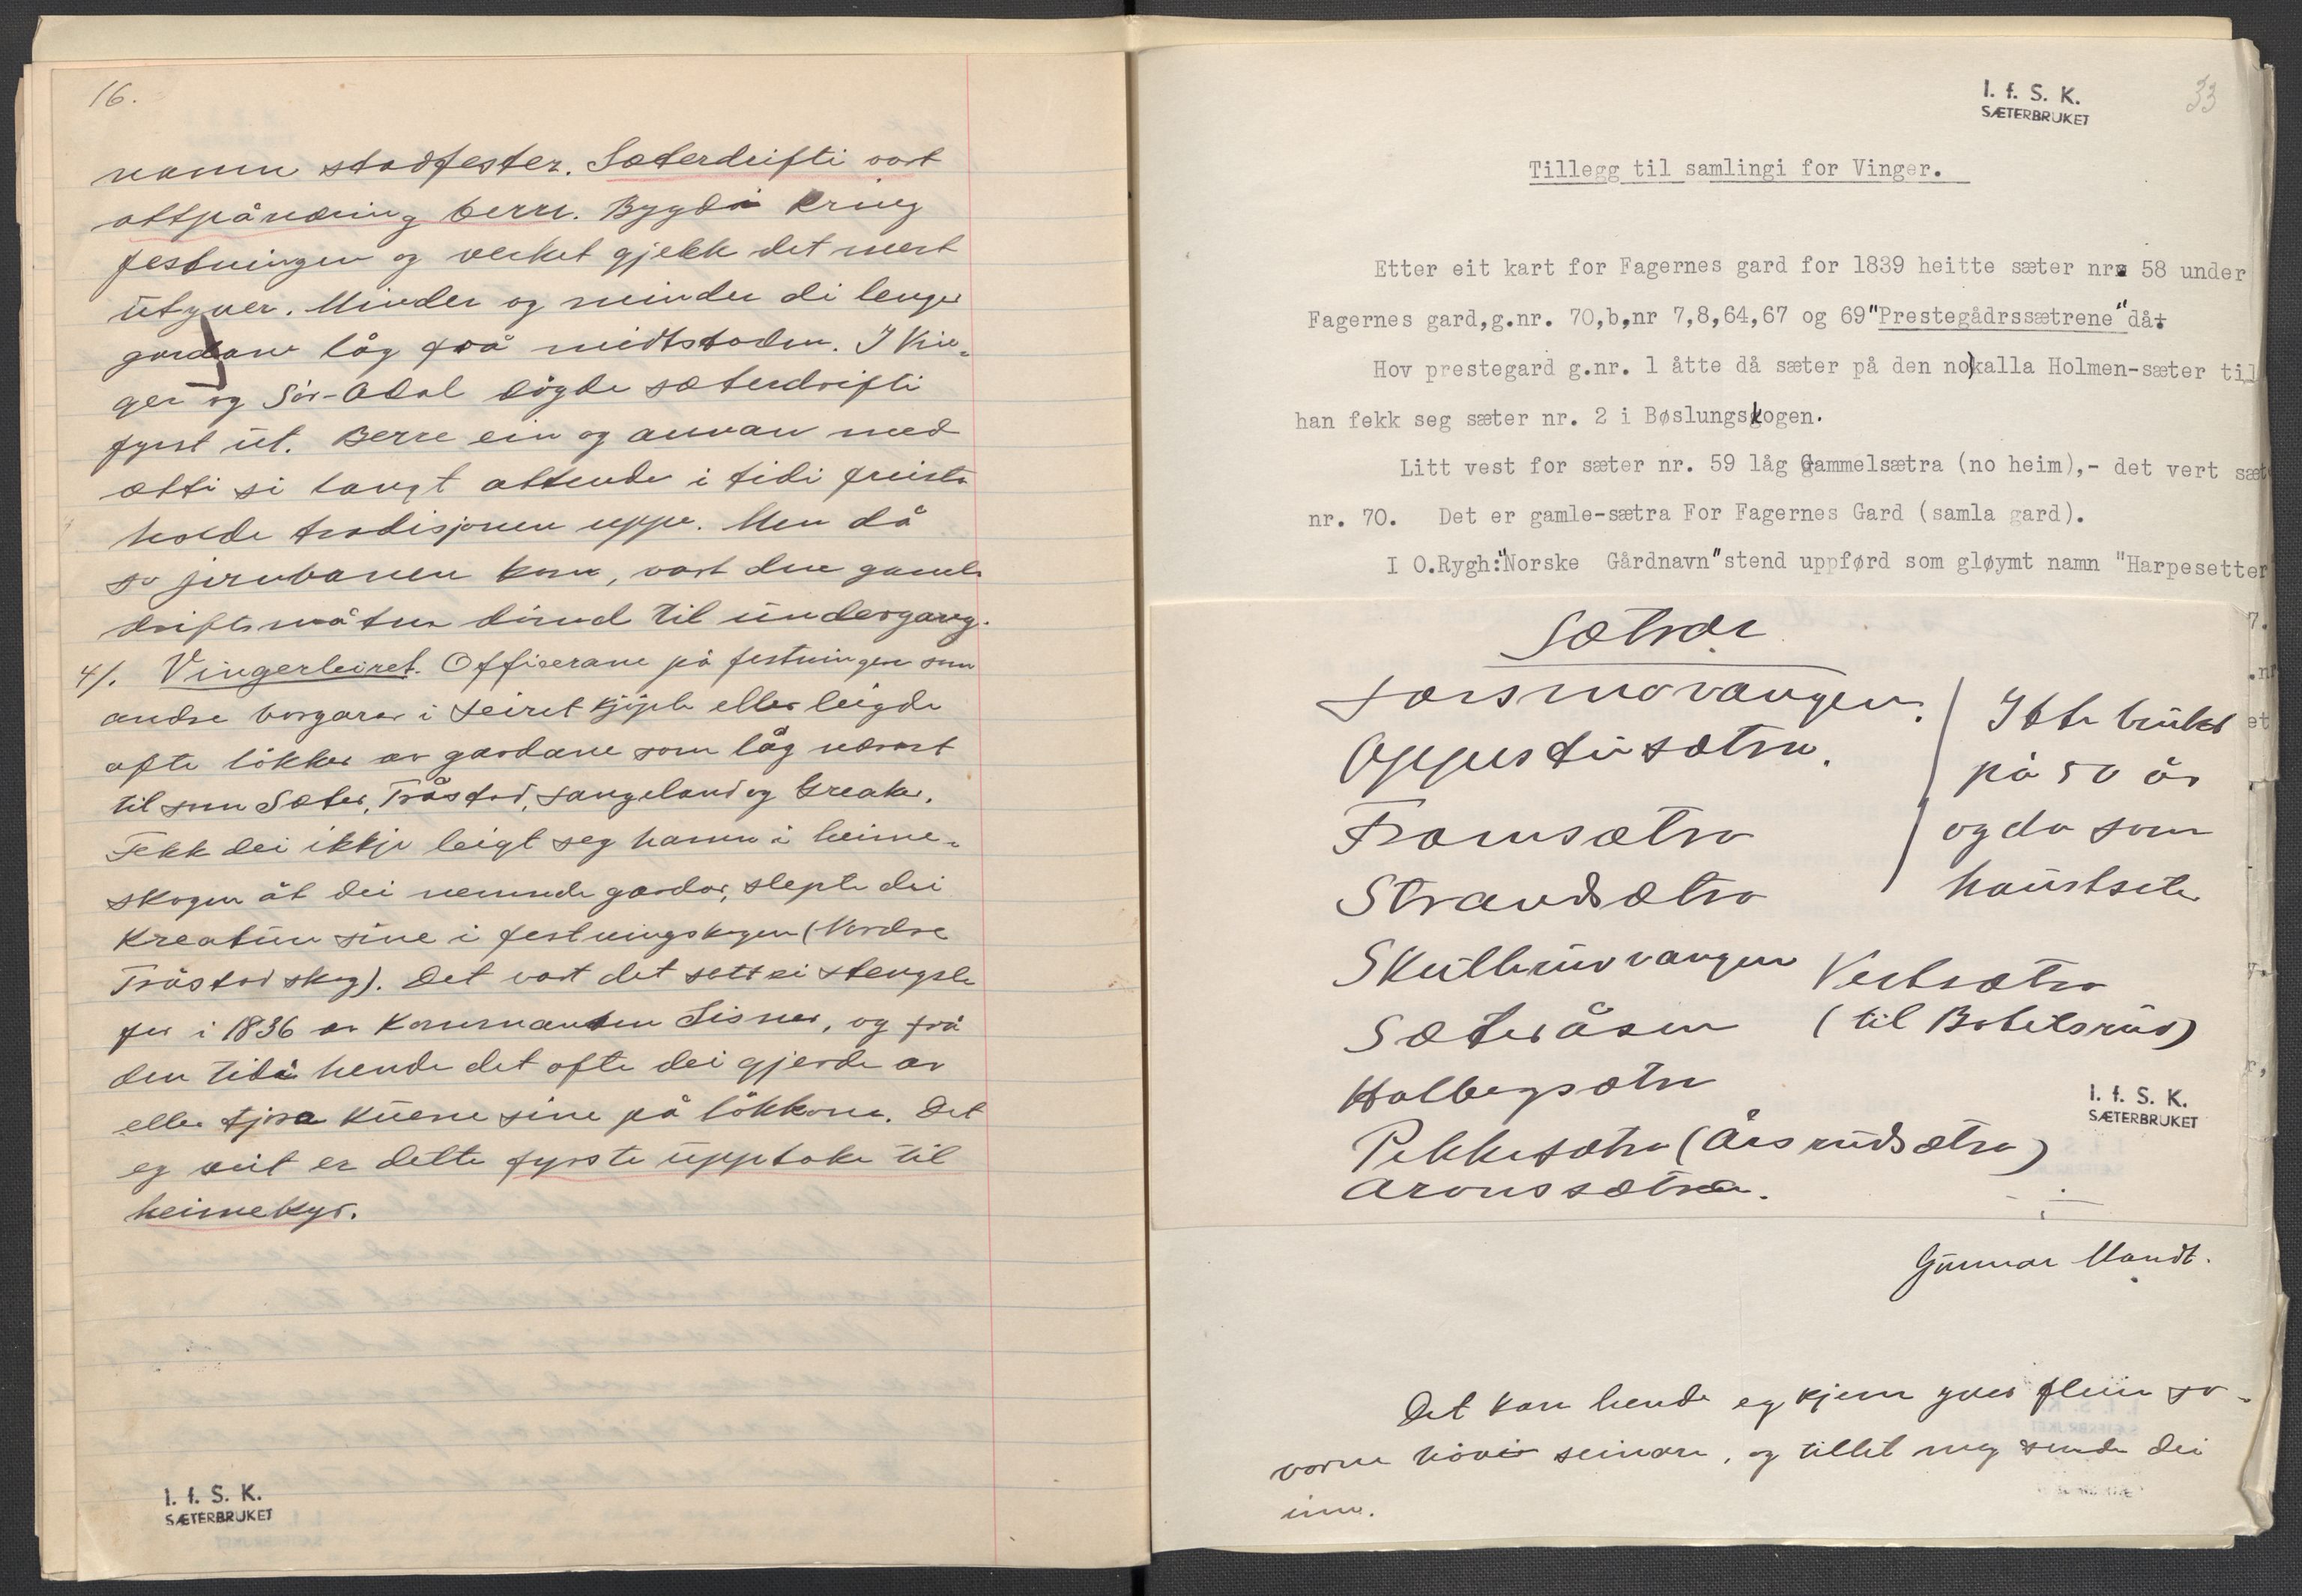 16.
namn stadfester. Sæterdrifti vart
attpånæring berre. Bygdi kring
festningen og verket gjekk det mest
utyver. Minder og minder di lenger
gardane låg frå midtstaden. I Vin-
ger og Sör-Odal døyde sæterdrifti
fyrst ut. Berre ein og annan med
ætti si langt attende i tidi freista
halde tradisjonen uppe. Men då
so jernbanen kom, vart den gamle
driftsmåten dømd til undergang.
4/. Vingerleiret. Officerane på festningen som
andre borgarar i Leiret kjöpte eller leigde
ofte lökker av gardane som låg nærast
til som Sæter, Tråstad, Langeland og Greaker.
Fekk dei ikkje leigt seg hamn i heime-
skogen åt dei nemnde gardar, slepte dei
kreaturi sine i festningskogen (Nordre
Tråstad skog). Det vart det sett ei stengsle
for i 1836 av Kommandten Sisner, og frå
den tidi hende det ofte dei gjerde av
eller tjora kuene sine på lökkone. Det
eg veit er dette fyrste upptake til
heimekyr.
I. f. S. K.
SÆTERBRUKET
I. f. S. K.
SÆTERBRUKET
33
Tillegg til samlingi for Vinger.
Etter eit kart for Fagernes gard for 1839 heitte sæter nr. 58 under
Fagernes gard,g.nr. 70,b,nr 7,8,64,67 og 69"Prestegådrssætrene"då.
Hov prestegard g.nr. 1 åtte då sæter på den no kalla Holmen-sæter til
han fekk seg sæter nr. 2 i Bøslungskogen.
Litt vest for sæter nr. 59 låg Gammelsætra (no heim),- det vert sæt
nr. 70. Det er gamle-sætra For Fagernes Gard (samla gard).
I O.Rygh:"Norske Gårdnavn"stend uppførd som gløymt namn "Harpesetter
Sætrar
Larsmovangen.
Oppustusætra.
Framsætra
Strandsætra
Ikke brukt
på 50 år
og da som
haustseter
Skullerudvangen
Vestsætra
Sæteråsen
(til Bobelsrud)
Holbergsætra
Pekkesætra (Åsrudsætra)
Aronssætra.
I. f. S. K.
SÆTERBRUKET
Gunnar Mandt.
Det kan hende eg kjem yver fleire so-
vorne seinare, og tillet meg sende dei
inn.